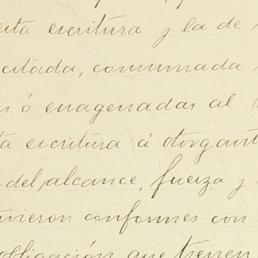 esta escritura y la de
citada, consumada
s ó enagenadas al
ta escritura á otorgant
del alcance, fuerza y
uvieron conformes con
obligación que tienen